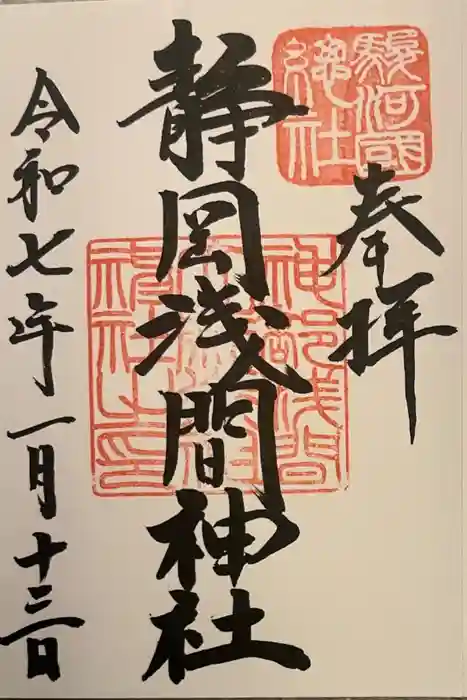 奉拝
駿河國
總社
静岡浅間神社
令和七年一月十三日